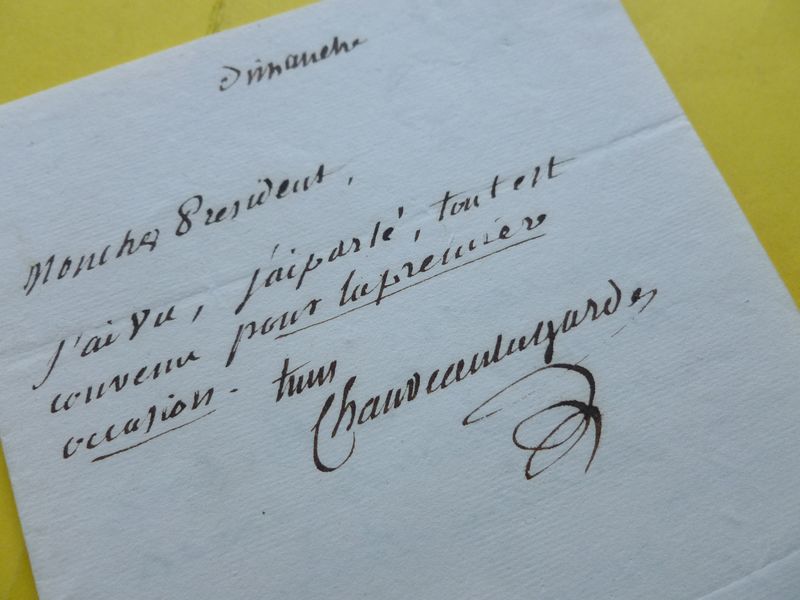 Dimanche
Mon cher Président,
J'ai vu, j'ai parlé, tout est
convenu pour la première
occasion - tuus
Chauveau Lagarde